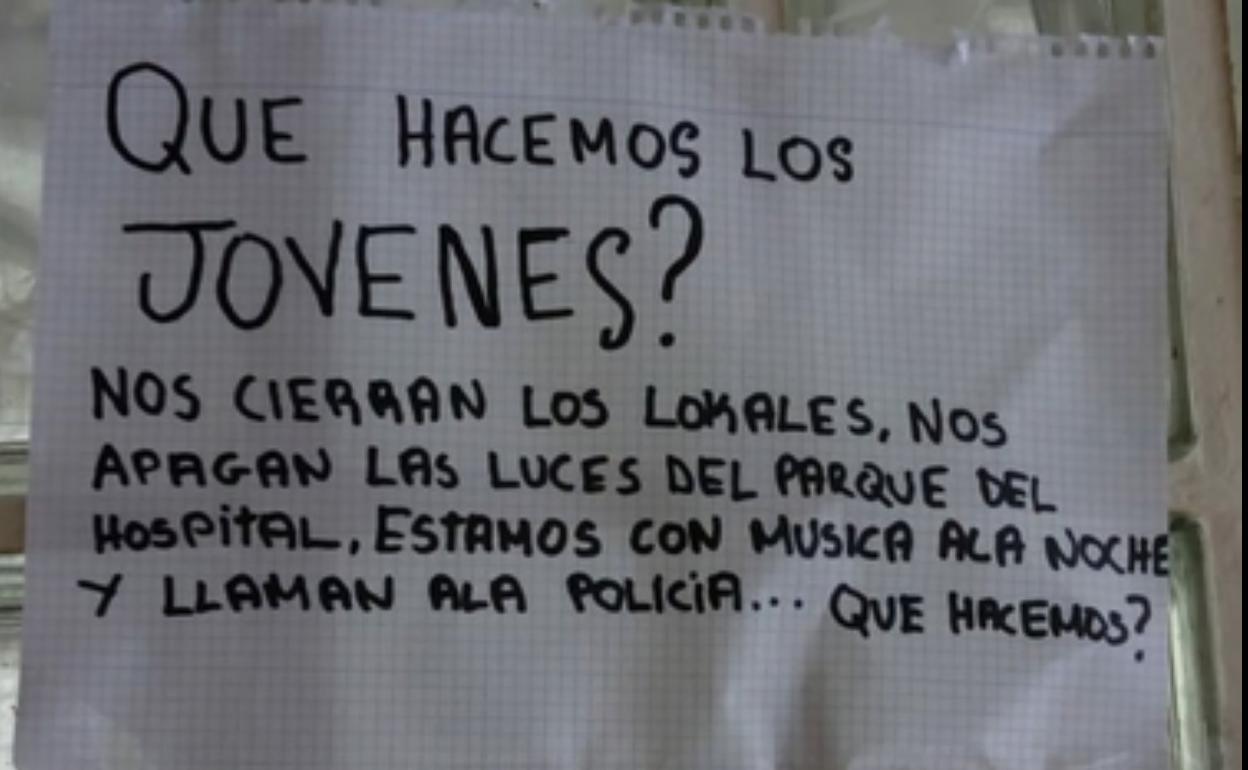 QUE HACEMOS LOS
JOVENES?
NOS CIERRAN LOS LOKALES, NOS
APAGAN LAS LUCES DEL PARQUE DEL
HOSPITAL, ESTAMOS CON MUSICA ALA NOCHE
Y LLAMAN ALA POLICIA... QUE HACEMOS?